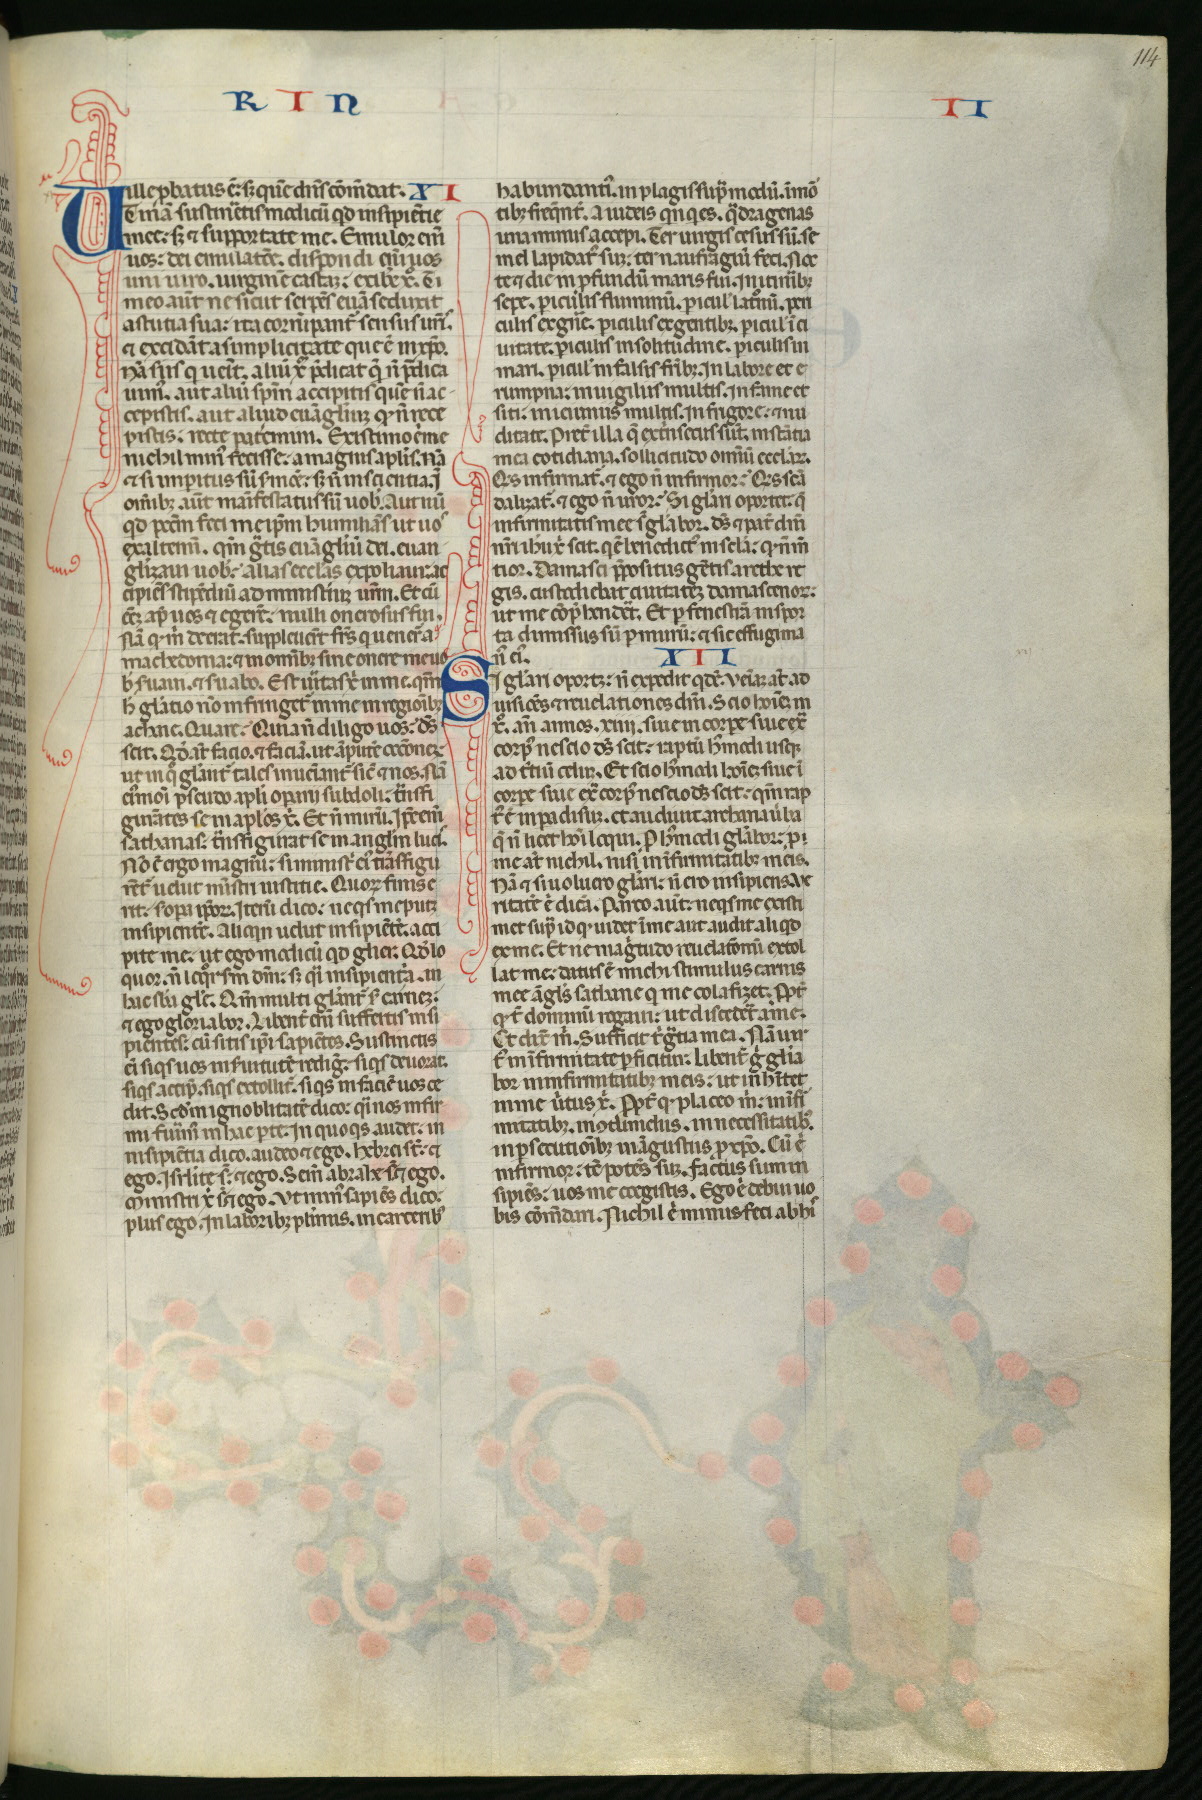 114
R I N
II
ille ꝓbatus ē: sꝫ quē dn̄s cōm̄dat. XI
Utinā sustinētis modicū qd insipiētie
mee: sꝫ ⁊ supportate me. Emulor eni
uos: dei emulatōe. dispondi eni uos
uni uiro. uirginē castā: exibe xͦ. Ti
meo aūt ne sicut serpēs euā seduxit
astutia sua: ita corrūpant̄ sensus ur̄i.
⁊ excidāt a simplicitate que ē in xp̄o.
Nā si is q̇ uēit. aliū xp̄ p̄dicat q̄ n̄ p̄dica
uim̄. aut aliū sp̄m accipitis quē n̄ ac-
cepistis. aut aliud euāgliuꝫ qd̄ n̄ rece
pistis: recte pateremini. Existimo eni me
nichil min̄ fecisse: a magnis aplis. Nā
⁊ si imperitus sū sermōe: sꝫ n̄ in sciētia. I
omībꝫ aūt manifestatus sū uob̄. Aut nū
qd pccm̄ feci me ip̄m humiliās ut uos
exaltemī. qm̄ gratis euāgliū dei. euan
glizaui uob̄: alias ecclās expoliaui: ac
cipiēs stipēdiū ad ministiuꝫ ur̄m. Et cū
eēꝫ apud uos ⁊ egerē: nulli onerosus fui.
Nā qd̄ m̄ deerat. suppleuert̄ fr̄s q̇ uenerāt a
machedonia: ⁊ in omibꝫ sine onere me uob̄
seruaui. ⁊ suabo. Est ūitas xͥ in me. qm̄
h̄ glatio nō infringet̄ in me in regionibꝫ
achaie. Quare: Quia n̄ diligo uos: ds̄
scit. Qd̄ aūt facio. ⁊ faciā. ut amputē occōneꝫ:
ut in q̇ glant̄ tales inueniant̄ sic̄ ⁊ nos. Nā
ei̇modi pseudo apli operarij subdoli: trāsfi
gurātes se in aplos xͥ. Et n̄ mirū. Ip̄e eni
sathanas: trāsfigurat se in angl̄m lucis.
Nō ē ergo magnū: si ministri ei̇ trāsfigu
rēt̄ uelut ministri iustitie. Quoꝝ finis e
rit: s̄ opa ip̄oꝝ. Iterū dico: neqs me putꝫ
insipientē. Alioqn uelut insipiētē. acci
pite me: ut ego modicū qd glier. Qd̄ lo
quor. n̄ loqr̄ sm̄ dm̄: sꝫ q̇i insipientia. in
hac sbā glē. Qm̄ multi glant̄ s̄ carneꝫ:
⁊ ego gloriabor. Libent̄ eni suffertis insi
pientes: cū sitis ip̄i sapiētes. Sustinetis
eni siqs uos in seruitutē redigit̄. siqs deuorat.
siqs accip̄. siqs extollit̄. siqs in faciē uos ce
dit. Scd̄m ignobilitatē dico: q̇i nos infir
mi fuim̄ in hac pte. In quo qs audet: in
insipiētia dico. audeo ⁊ ego. Hebrei st̄: ⁊
ego. Isr̄lite st̄: ⁊ ego. Semē abrahe st̄: ⁊ ego.
Ministri xͥ st̄: ⁊ ego. Vt min̄ sapiēs dico:
plus ego. In laboribꝫ plimis. in carceribꝫ
habundanti. in plagis sup̄ modū. ī mo
tibꝫ freqnt̄. A iudeis qnqes. q̄dragenas
una minus accepi. Ter uirgis cesus sū. se
mel lapidat̄ suꝫ: ter naufragiū feci. Noc
te ⁊ die in pfundū maris fui. In itineribꝫ
sepe. piculis fluminū. picul̄ latronū. peri
culis ex gn̄e. piculis ex gentibꝫ. picul̄ i ci
uitate. piculis in solitudine. piculis in
mari. picul̄ in falsis fr̄ibꝫ. In labore et e
rumpna: in uigiliis multis. In fame et
siti: in ieiuniis multis. In frigore: ⁊ nu
ditate. Pret̄ illa q̄ extrinsecus sūt. instātia
mea cotidiana. sollicitudo omniū ecclaꝝ.
Qis infirmat̄. ⁊ ego n̄ infirmor: Qis scā
dalizat̄. ⁊ ego n̄ uror: Si glari oportet: q̄
infirmitatis mee s̄ glabor. ds̄ ⁊ pat̄ dni
nr̄i ihu xͥ scit. qui ē benedict̄ in scla: qd̄ n̄ m̄
tior. Damasci p̄positus gētis arethe re
gis. custodiebat ciuitateꝫ damascenoꝝ:
ut me cōp̄henderet̄. Et p fenestrā in spor
ta dimissus sū p murū: ⁊ sic effugi ma
n̄ ei̇. XII
Si glari oportꝫ: n̄ expedit qdē. Veniā at̄ ad
uisiōes ⁊ reuelationes dni. Scio hoīeꝫ in
xͦ. an̄ annos. xiiij. siue in corpe siue ext̄
corpꝰ nescio ds̄ scit: raptū h̄modi usqꝫ
ad t̄tiū celuꝫ. Et scio h̄modi hoīeꝫ siue i
corpe siue ext̄ corpꝰ nescio ds̄ scit: qm̄ rap
t̄ ē in padisuꝫ. et audiuit archana ūba
q̄ n̄ licet hoī loqui. P h̄modi glabor: p
me at̄ nichil. nisi in infirmitatibꝫ meis.
Nā ⁊ si uoluero glari: n̄ ero insipiens. Ve
ritatē ē dicā. Parco aūt: neqs me existi
met sup̄ id qd̄ uidet in me aut audit aliqd
ex me. Et ne magitudo reuelationū extol
lat me: datus ē michi stimulus carnis
mee āgls sathane q̇ me colafizet. Ppt̄
qd̄ t̄ dominū rogaui: ut discedet̄ a me.
Et dixit m̄. Sufficit t̄ gr̄tia mea. Nā uir
t̄ in infirmitate pficitur. libent̄ g̊ glia
bor in infirmitatibꝫ meis: ut inhītet
in me ūtus xͥ. Ppt̄ qd̄ placeo m̄: in īfi
mitatibꝫ. in ɔtumeliis. in necessitatibꝫ.
in psecutiōibꝫ in āgustiis p xp̄o. Cū ē
infirmor: tē potēs suꝫ. Factus sum in
sipiēs: uos me coegistis. Ego ē debui uo
bis cōmdari. Nichil ē minus feci ab his